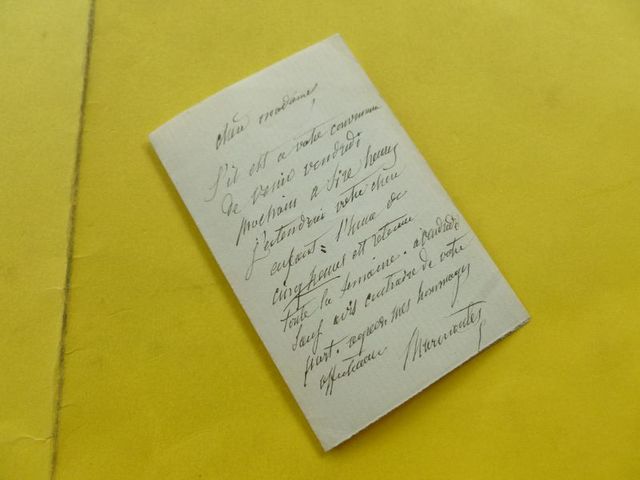 chère madame,
S'il est a votre convenance
de venir vendredi
prochain a six heures
j'entendrai votre cher
enfant = l'heure de
cinq heures est retenue
toute la semaine. a vendredi
sauf avis contraire de votre
part. agréez mes hommages
affectueux Marmontel